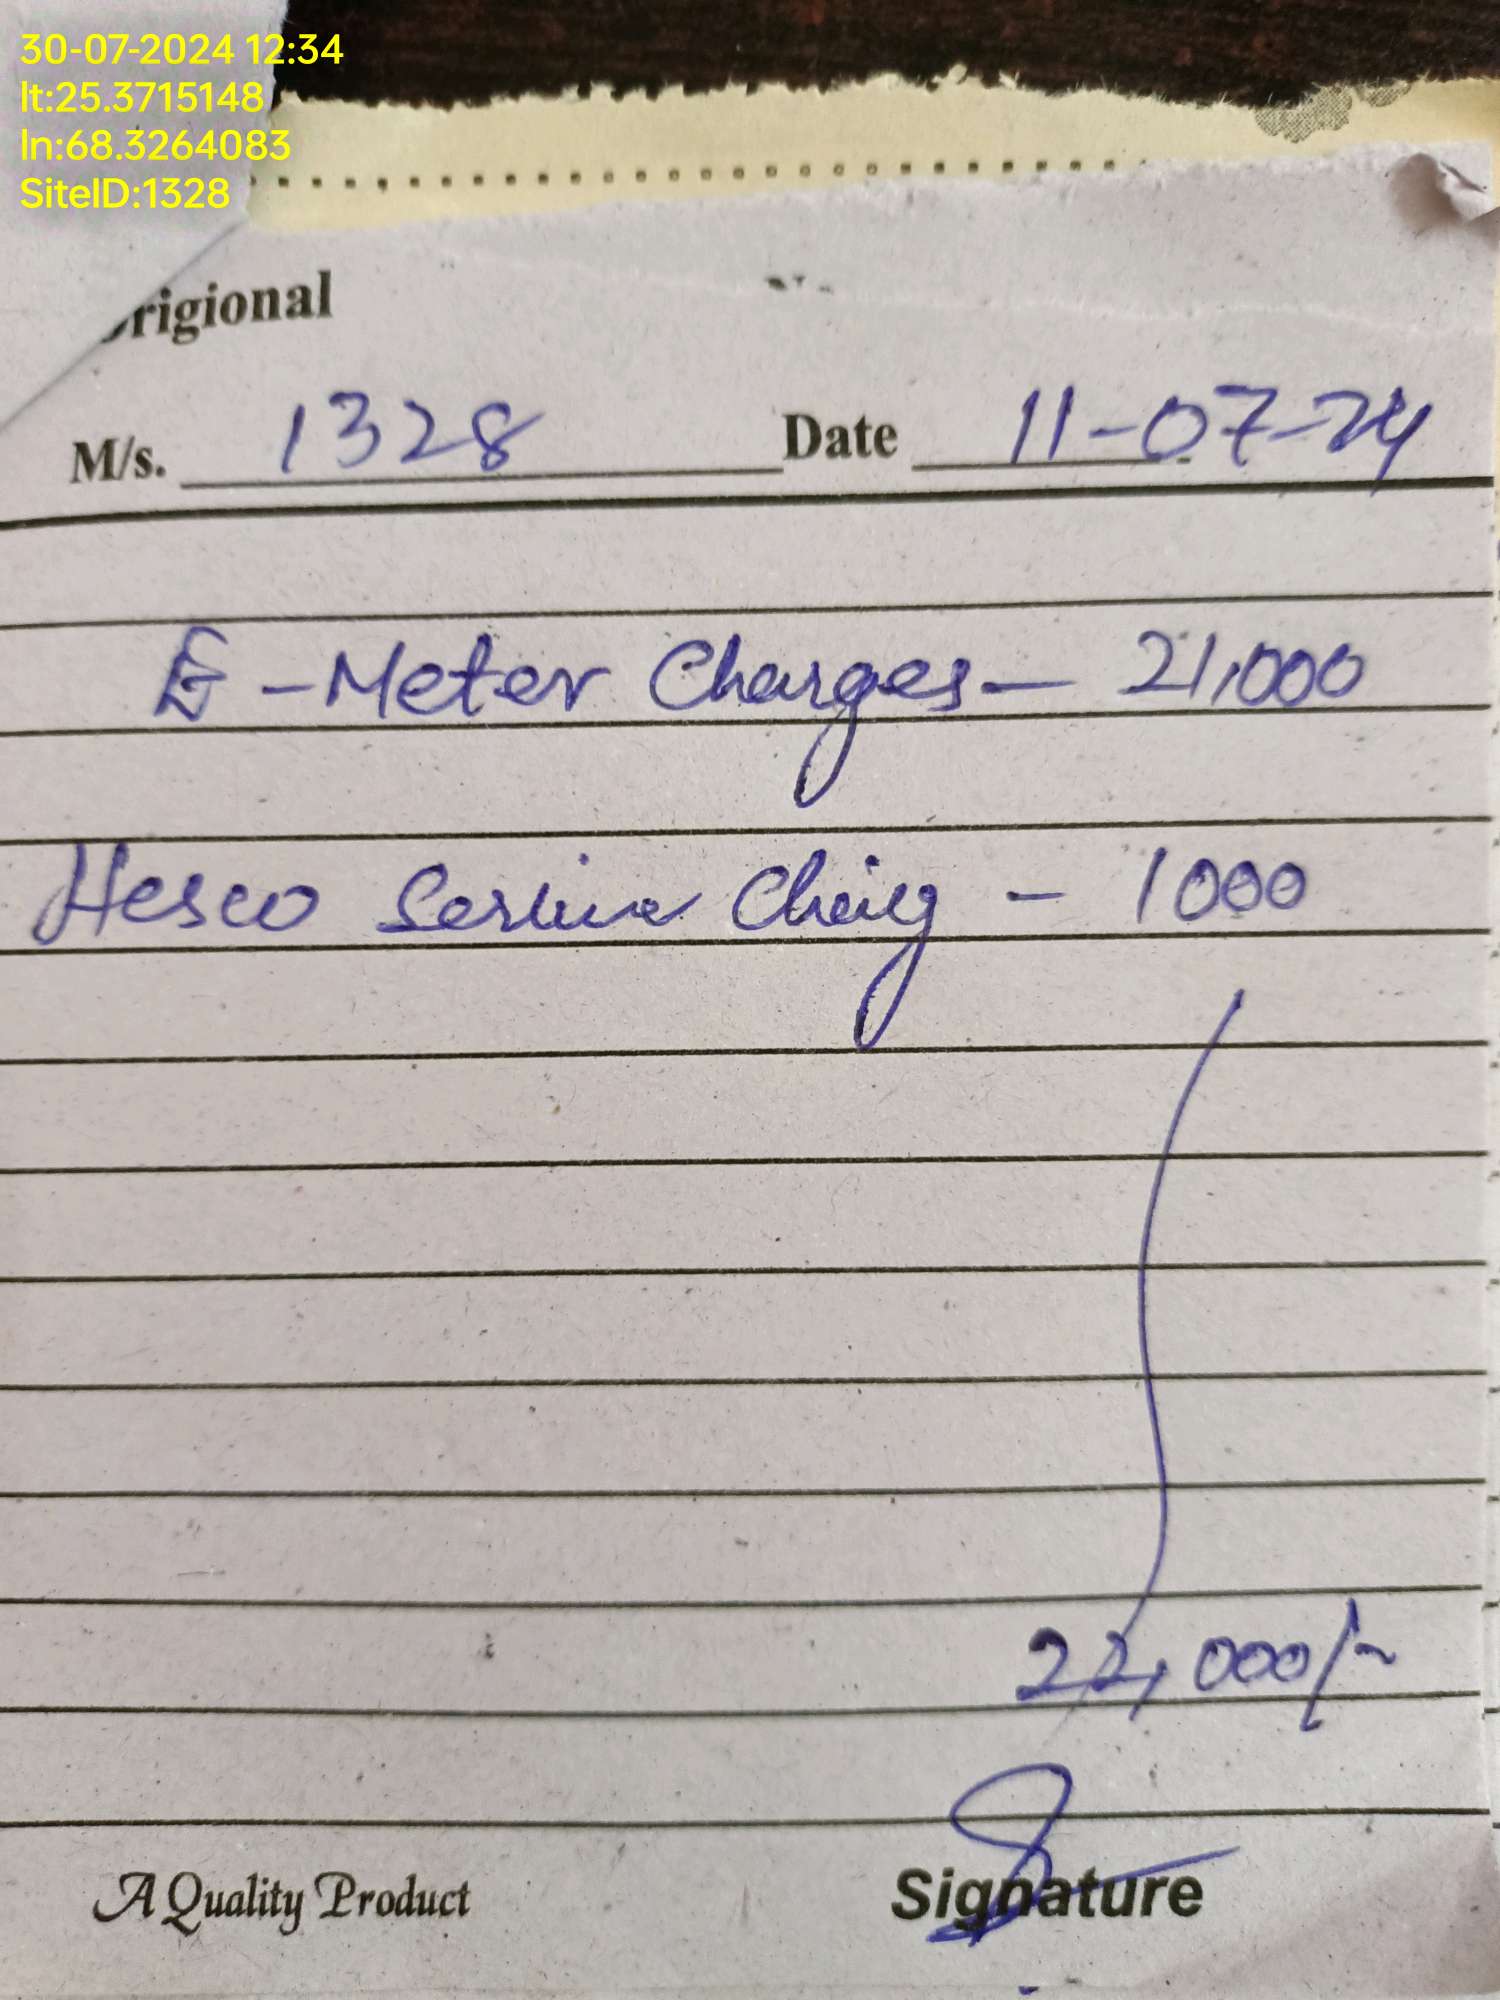 30-07-2024 12:34
lt:25.3715148
ln:68.3264083
SiteID:1328
Origional
M/s. 1328 Date 11-07-24
E-Meter Charges - 21,000
Hesco Service Charg - 1000
22,000/-
A Quality Product
Signature